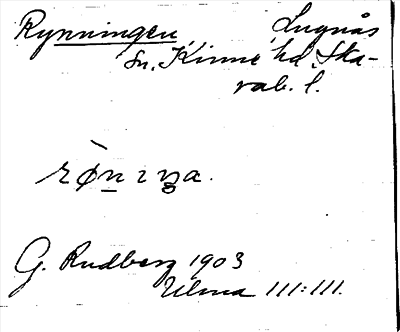 Rynningen, Lugnås
sn. Kinne hd. Ska-
rab. l.
rø̀nıŋa.
G. Rudberg 1903
Ulma 111:111.